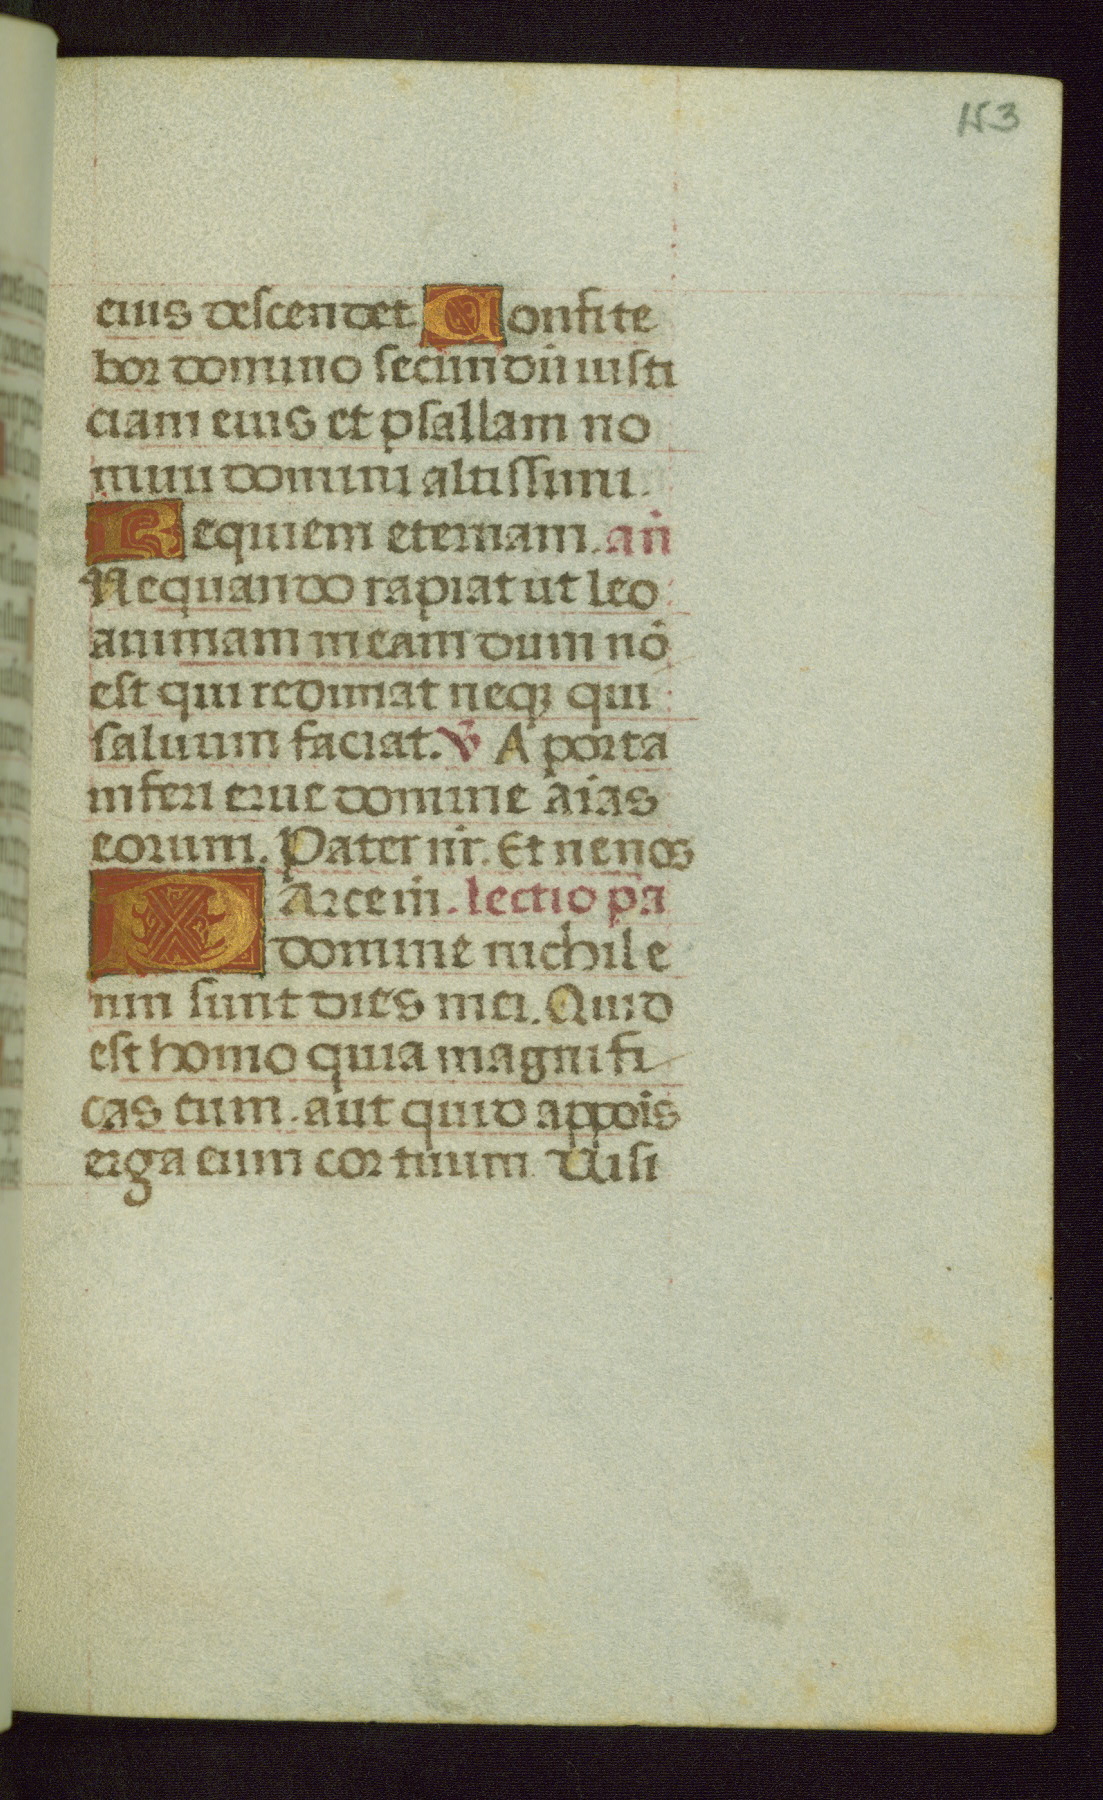 153
eius descendet Confite
bor domino secundū iusti
ciam eius et psallam no
mini domini altissimi.
Requiem eternam. añ
Nequando rapiat ut leo
animam meam dum nō
est qui redimat neqꝫ qui
saluum faciat. ℣ A porta
inferi erue domine aīas
eorum. Pater nr̄. Et ne nos
PArce m̄. lectio pa
domine nichil e
nim sunt dies mei. Quid
est homo quia magnifi
cas eum. aut quid appōis
erga eum cor tuum Uisi